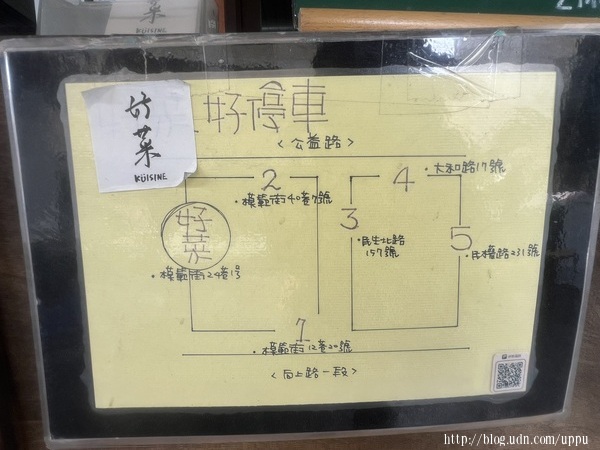 好菜
KÜISINE
好停車
〈公益路〉
2
・模範街40巷7號
4
・大和路17號
好菜
・模範街24巷1号
3
・民生北路
157號
5
・民權路231號
1
・模範街12巷20號
〈向上路一段〉
KÜISINE
http://blog.udn.com/uppu